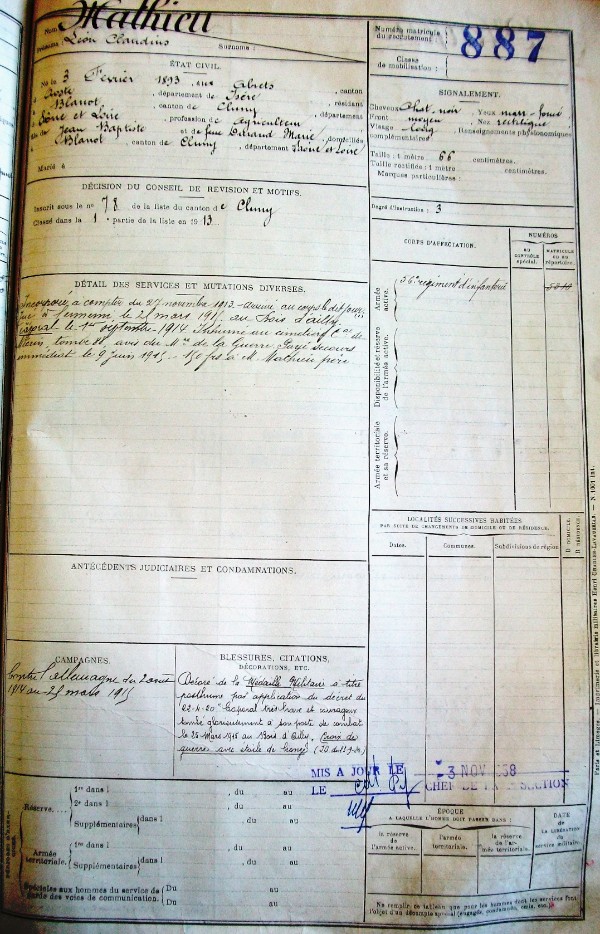 Nom : Mathieu
Prénoms : Léon Claudius Surnoms :
ÉTAT CIVIL.
Né le 3 Février 1893, aux Abrets
, canton
d , département de Isère, résidant
à Blanot, canton de Cluny, département
Saône et Loire, profession de Agriculteur
fils de Jean Baptiste et de feue Durand Marie, domiciliés
à Blanot, canton de Cluny, département Saône et Loire
Marié à
DÉCISION DU CONSEIL DE RÉVISION ET MOTIFS.
Inscrit sous le no 78 de la liste du canton de Cluny
Classé dans la 1e partie de la liste en 1913
DÉTAIL DES SERVICES ET MUTATIONS DIVERSES.
Incorporé, à compter du 27 novembre 1913 - Arrivé au corps le dit jour
Tué à l'ennemi le 25 mars 1915 au Bois d'Ailly
Caporal le 1er septembre 1914 Inhumé au cimetière
tombe avis du Mre de la Guerre Payé secours
immédiat le 9 juin 1915 - 150 frs à M. Mathieu père
ANTÉCÉDENTS JUDICIAIRES ET CONDAMNATIONS.
CAMPAGNES.
Contre l'Allemagne du 2 août
1914 au 25 mars 1915
BLESSURES, CITATIONS,
DÉCORATIONS, ETC.
Décoré de la Médaille Militaire à titre
posthume par application du décret du
22-4-20 "Caporal très brave et courageux
tombé glorieusement à son poste de combat
le 25-Mars 1915 au Bois d'Ailly. Croix de
guerre avec étoile de bronze)
MIS A JOUR LE 3 NOV
LE CHEF DE LA SECTION
Réserve....
1re dans l , du au
2e dans l , du au
Supplémentaires dans l , du au
Armée
territoriale.
1re dans l , du au
Supplémentaires dans l , du au
Spéciales aux hommes du service de
garde des voies de communication.
Du au
Du au
Numéro matricule
du recrutement :
887
Classe
de mobilisation :
SIGNALEMENT.
Cheveux Chat. noir, Yeux marr. foncé
Front moyen Nez rectiligne
Visage long Renseignements physionomiques
complémentaires
Taille : 1 mètre 66 centimètres.
Taille rectifiée : 1 mètre centimètres.
Marques particulières :
Degré d'instruction : 3
CORPS D'AFFECTATION.
NUMÉROS
AU
CONTRÔLE
spécial.
MATRICULE
OU AU
répertoire.
Armée
active.
56e régiment d'infanterie
Disponibilité et réserve
de l'armée active.
Armée territoriale
et sa réserve.
LOCALITÉS SUCCESSIVES HABITÉES
PAR SUITE DE CHANGEMENTS DE DOMICILE OU DE RÉSIDENCE.
Dates. Communes. Subdivisions de région D. DOMICILE. R. RÉSIDENCE.
ÉPOQUE
A LAQUELLE L'HOMME DOIT PASSER DANS :
la réserve
de l'armée active.
l'armée
territoriale.
la réserve
de l'ar-
mée territoriale.
DATE
de
LA LIBÉRATION
du
service militaire.
Ne remplir ce tableau que pour les hommes dont les services font
l'objet d'un décompte spécial (engagés, condamnés, omis, etc.)
Paris et Limoges. — Imprimerie et librairie militaires Henri CHARLES-LAVAUZELLE.